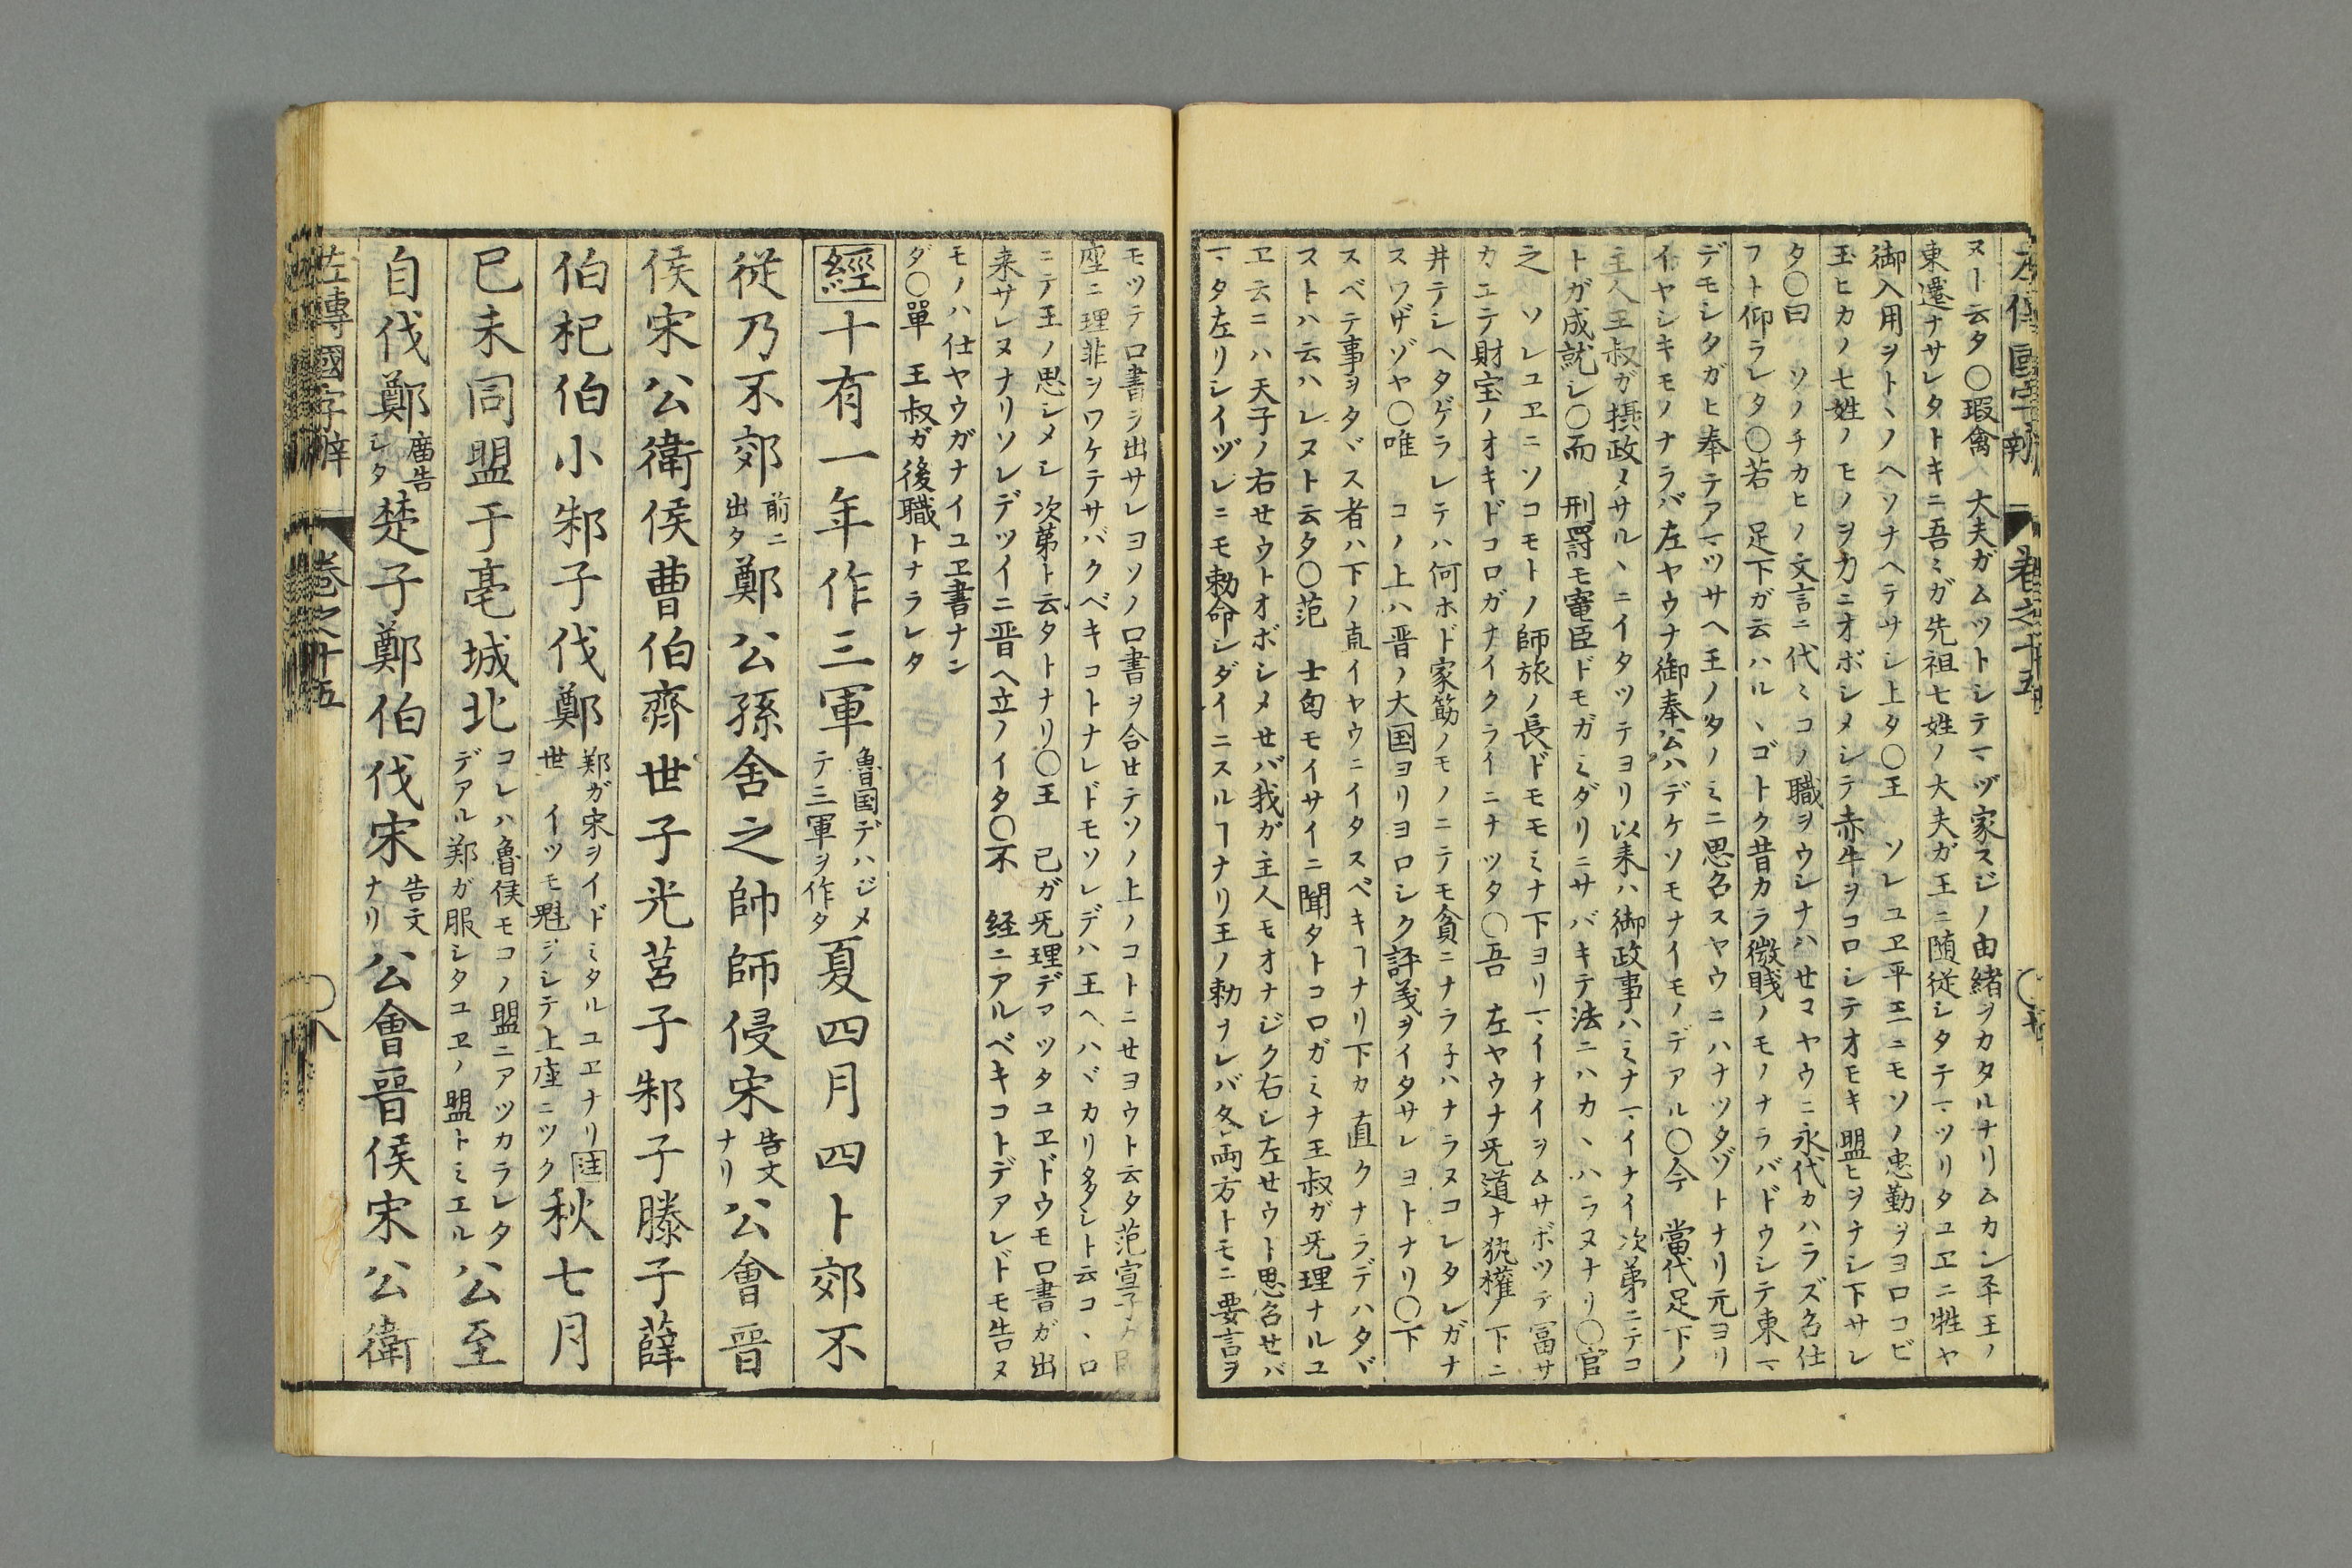 左傳國字辯 卷之十五
ヌト云タ〇瑕禽 大夫ガムツトシテマヅ家スジノ由緒ヲカタルナリムカシ平王ノ
東遷ナサレタトキニ吾〻ガ先祖七姓ノ大夫ガ王ニ随従シタテマツリタユヱニ牲ヤ
御入用ヲトヽノヘソナヘテサシ上タ〇王 ソレユヱ平王ニモソノ忠勤ヲヨロコビ
玉ヒカノ七姓ノモノヲ力ニオボシメシテ赤牛ヲコロシテオモキ盟ヒヲナシ下サレ
タ〇曰 ソノチカヒノ文言ニ代〻コノ職ヲウシナハセマヤウニ永代カハラズ名仕
フト仰ラレタ〇若 足下ガ云ハルヽゴトク昔カラ微賤ノモノナラバドウシテ東マ
デモシタガヒ奉テアマツサヘ王ノタノミニ思名スヤウニハナツタゾトナリ元ヨリ
イヤシキモノナラバ左ヤウナ御奉公ハデケソモナイモノデアル〇今 當代足下ノ
主人王叔ガ摂政メサルヽニイタツテヨリ以来ハ御政事ハミナマイナイ次第ニテコ
トガ成就シ〇而 刑罰モ寵臣ドモガミダリニサバキテ法ニハカヽハラヌナリ〇官
之 ソレユヱニソコモトノ師旅ノ長ドモモミナ下ヨリマイナイヲムサボツテ冨サ
カユテ財宝ノオキドコロガナイクライニナツタ〇吾 左ヤウナ旡道ナ執権ノ下ニ
井テシヘタゲラレテハ何ホド家筋ノモノニテモ貪ニナラ子ハナラヌコレタレガナ
スワザゾヤ〇唯 コノ上ハ晋ノ大国ヨリヨロシク評義ヲイタサレヨトナリ〇下
スベテ事ヲタヾス者ハ下ノ直イヤウニイタスベキヿナリ下カ直クナラデハタヾ
ストハ云ハレヌト云タ〇范 士匄モイサイニ聞タトコロガミナ王叔ガ旡理ナルユ
ヱ云ニハ天子ノ右セウトオボシメセバ我ガ主人モオナジク右シ左セウト思名セバ
マタ左リシイヅレニモ勅命シダイニスルヿナリ王ノ勅ヲレバ双両方トモニ要言ヲ
モツテ口書ヲ出サレヨソノ口書ヲ合セテソノ上ノコトニセヨウト云タ范宣子ガ
座ニ理非ヲワケテサバクベキコトナレドモソレデハ王ヘハヾカリ多シト云コヽロ
ニテ王ノ思シメシ次第ト云タトナリ〇王 已ガ旡理デマツタユヱドウモ口書ガ出
来サレヌナリソレデツイニ晋ヘ立ノイタ〇不 経ニアルベキコトデアレドモ告ヌ
モノハ仕ヤウガナイユヱ書ナン
ダ〇單 王叔ガ後職トナラレタ
經十有一年作三軍魯国デハジメテ三軍ヲ作タ夏四月四卜郊不
從乃不郊前ニ出タ鄭公孫舍之帥師侵宋告文ナリ公會晉
侯宋公衛侯曹伯齊世子光莒子邾子滕子薛
伯杞伯小邾子伐鄭鄭ガ宋ヲイドミタルユヱナリ注世 イツモ魁ジシテ上座ニツク秋七月
己未同盟于亳城北コレハ魯侯モコノ盟ニアツカラレタデアル鄭ガ服シタユヱノ盟トミエル公至
自伐鄭廣告シタ楚子鄭伯伐宋告文ナリ公會晉侯宋公衛
左傳國字辯 卷之十五 〇八